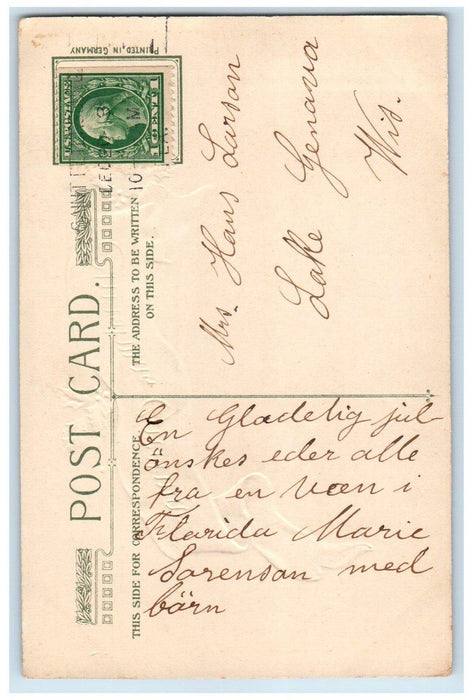 POST CARD.
THIS SIDE FOR CORRESPONDENCE
THE ADDRESS TO BE WRITTEN
ON THIS SIDE.
PRINTED IN GERMANY
U.S. POSTAGE
1 CENT 1
DEC
3
M
10
SAINT
Mrs. Hans Larson
Lake Genava
Wis.
En Gladelig jul
önskes eder alle
fra en væn i
Florida Marie
Sorenson med
börn